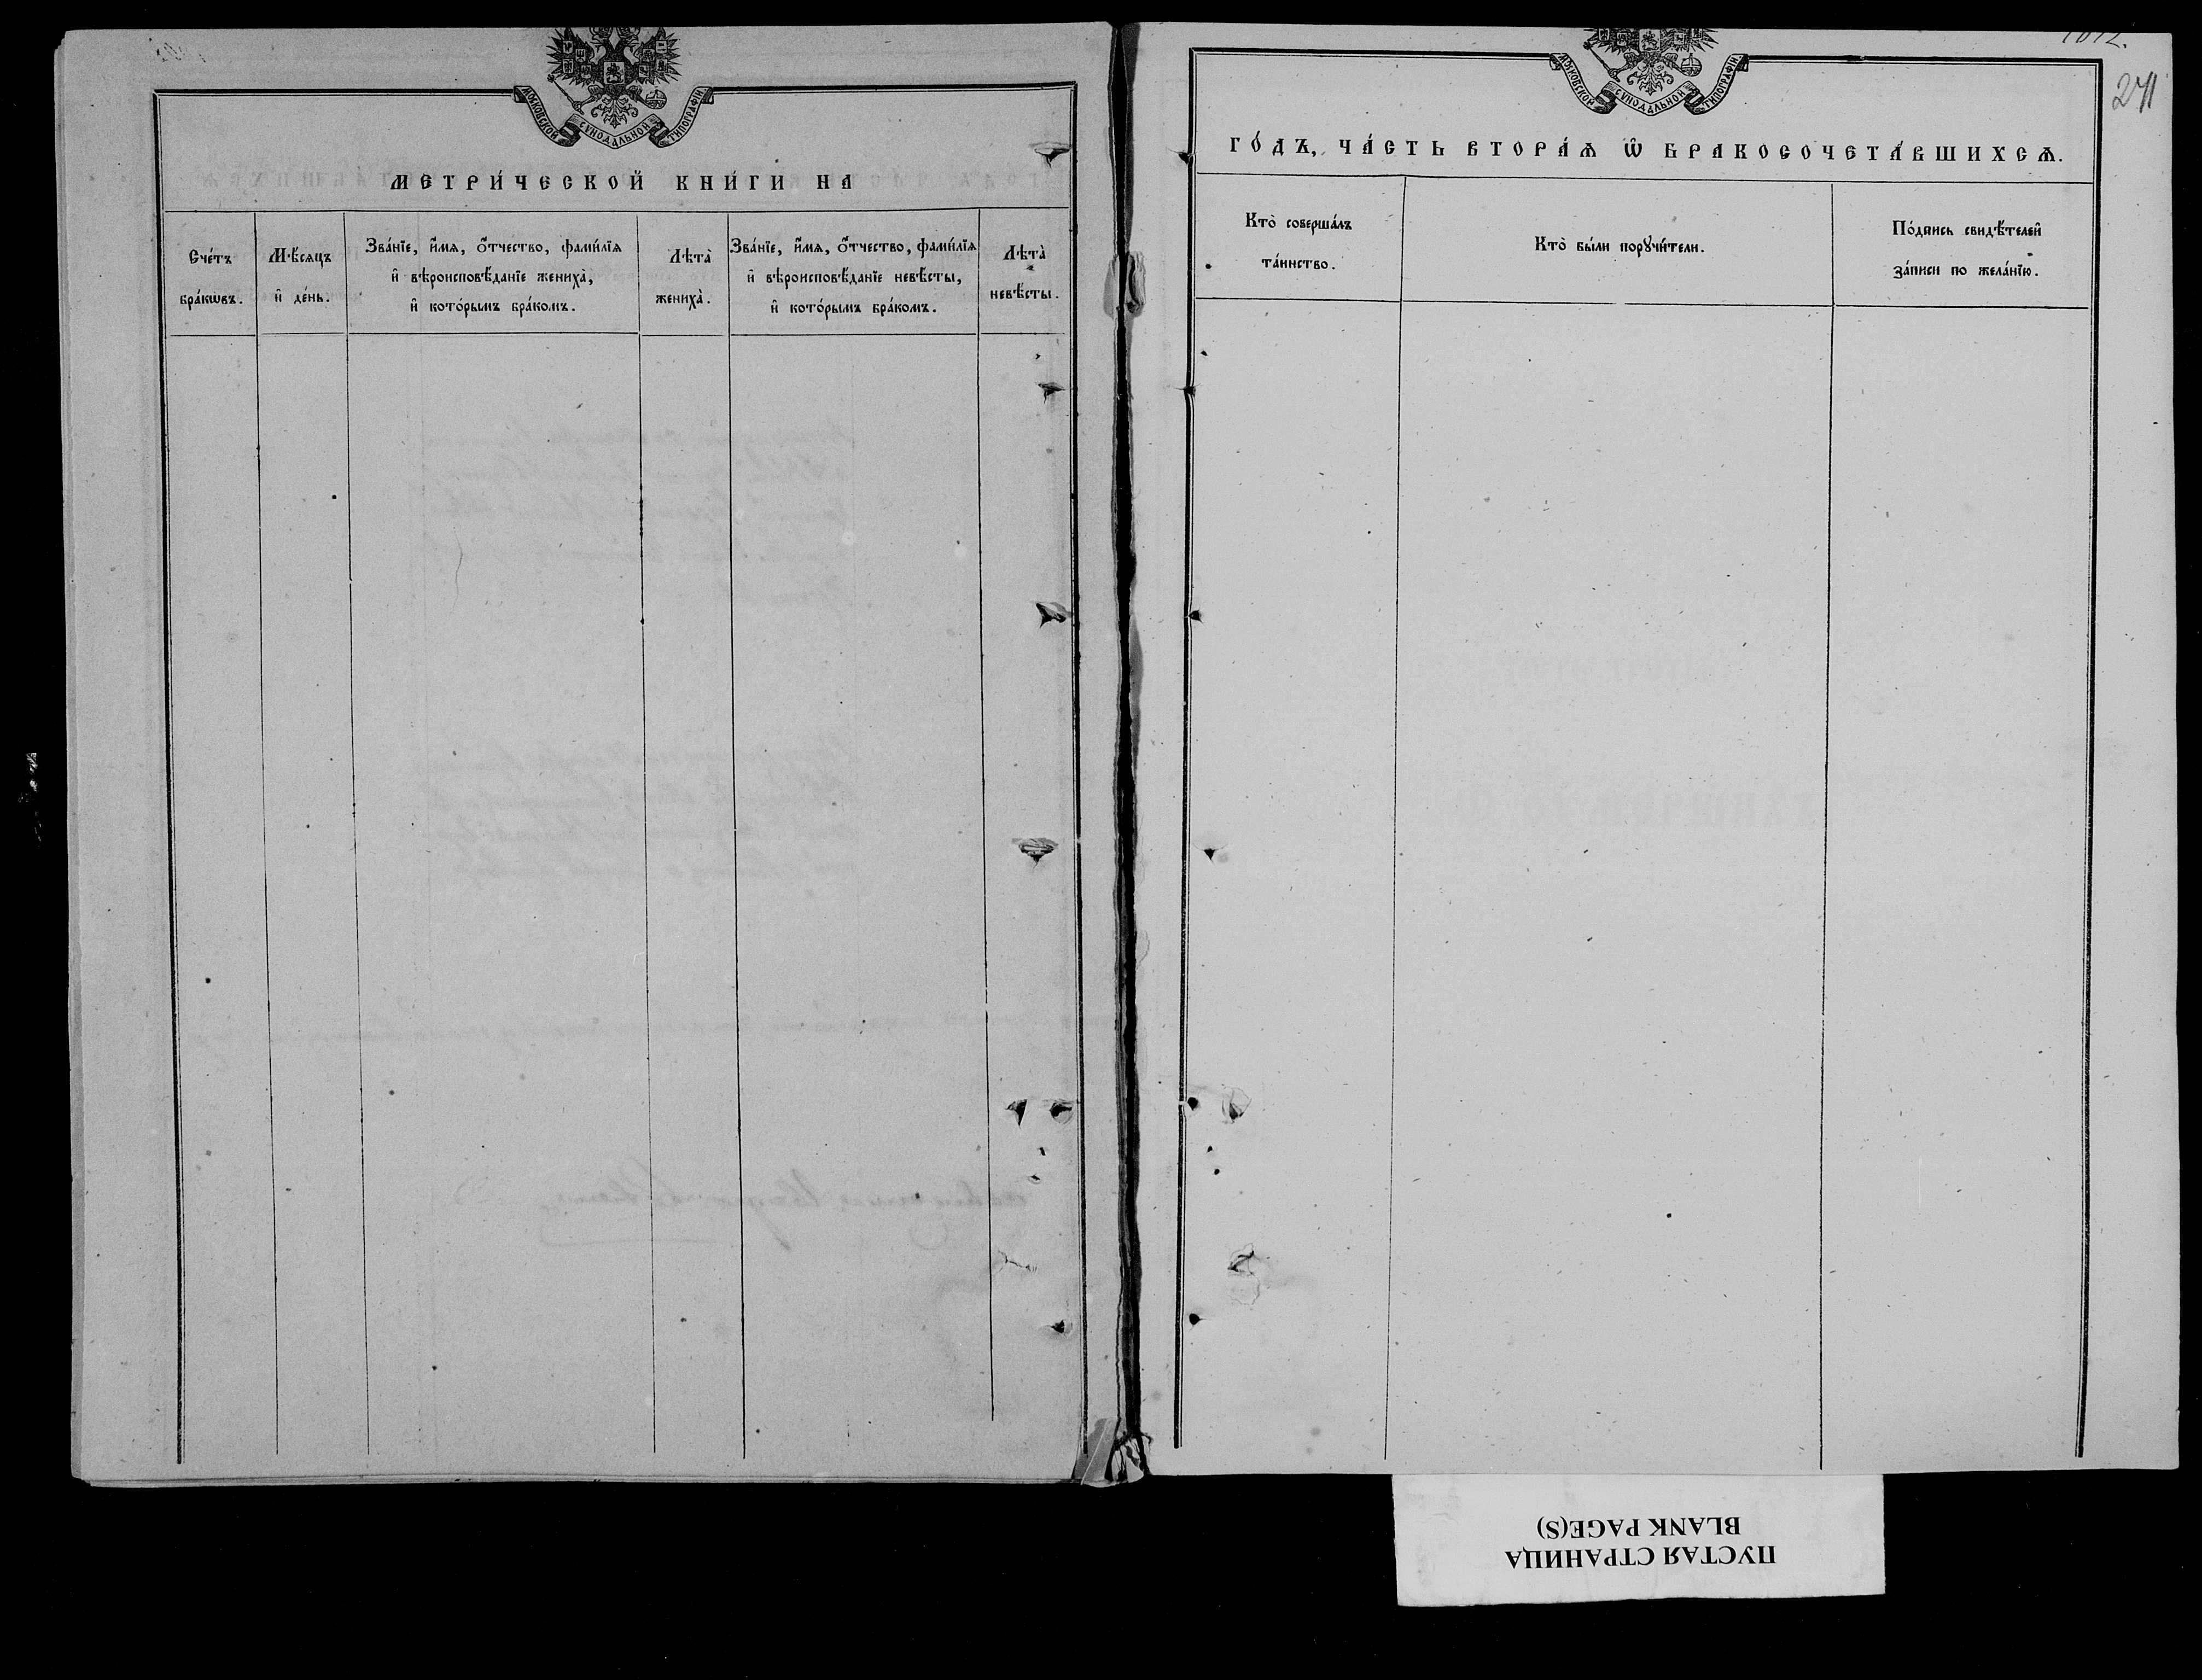 МОСКОВСКОЙ СѴНОДАЛЬНОЙ ТИПОГРАФІИ
МЕТРИ́ЧЕСКОЙ КНИ́ГИ НА
Сче́тъ
бра́кѡвъ.
Мѣ́сяцъ
и҆ де́нь.
Зва́нїе, и҆́мя, ѻ҆́тчество, фами́лїя
и҆ вѣроисповѣ́данїе жениха̀,
и҆ кото́рымъ бра́комъ.
Лѣта̀
жениха̀.
Зва́нїе, и҆́мя, ѻ҆́тчество, фами́лїя
и҆ вѣроисповѣ́данїе невѣ́сты,
и҆ кото́рымъ бра́комъ.
Лѣта̀
невѣ́сты.
271
МОСКОВСКОЙ СѴНОДАЛЬНОЙ ТИПОГРАФІИ
ГО́ДЪ, ЧА́СТЬ ВТОРА́Ѧ Ѡ҆ БРАКОСОЧЕТА́ВШИХСѦ.
Кто̀ соверша́лъ
та́инство.
Кто̀ бы́ли порꙋчи́тели.
По́дпись свидѣ́телей
за́писи по жела́нїю.
ПУСТАЯ СТРАНИЦА
BLANK PAGE(S)